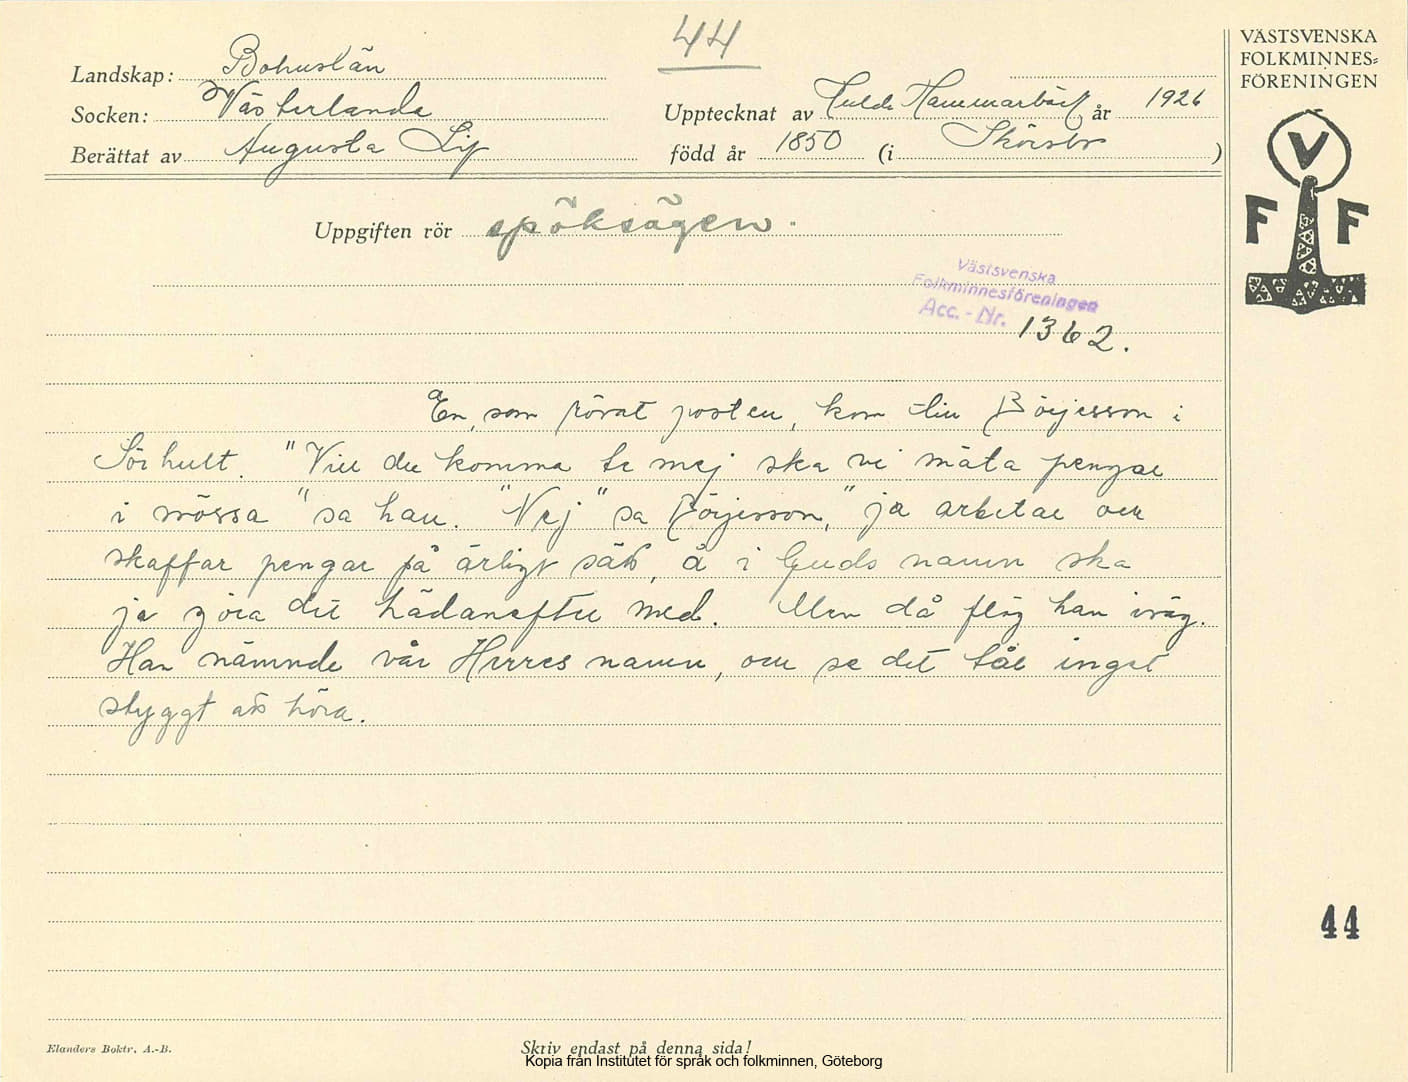 44
VÄSTSVENSKA
FOLKMINNES=
FÖRENINGEN
V
F F
Landskap: Bohuslän
Socken: Västerlanda
Upptecknat av Hulda Hammarbäck år 1926
Berättat av Augusta Lij
född år 1850 (i Skörsbo)
Uppgiften rör spöksägen.
Västsvenska
Folkminnesföreningen
Acc. - Nr. 1362.
En, som rövat posten, kom till Börjesson i
Sörhult. "Vill du komma te mej ska vi mäta pengar
i mössa" sa han. "Nej" sa Börjesson, "ja arbetar och
skaffar pengar på ärligt sätt, å i Guds namn ska
ja göra det hädanefter med. Men då flög han iväg.
Han nämnde vår Herres namn, och se det tål inget
styggt att höra.
44
Elanders Boktr. A.-B.
Skriv endast på denna sida!
Kopia från Institutet för språk och folkminnen, Göteborg